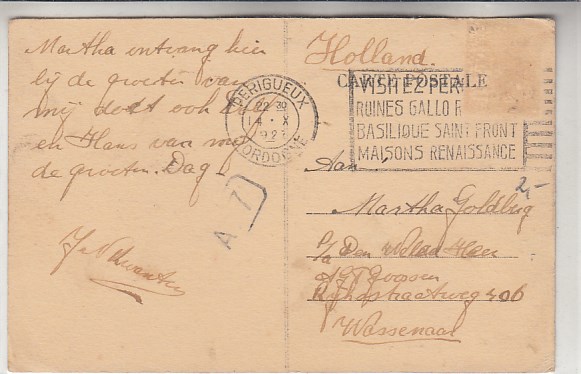 Martha ontvang hier
bij de groeten van
mij doet ook
en Hans van mij
de groeten. Dag
Holland.
CARTE POSTALE
PERIGUEUX
22 30
14 X
DORDOGNE
VISITEZ PER
RUINES GALLO R
BASILIQUE SAINT FRONT
MAISONS RENAISSANCE
2,-
A 7
Aan
Martha Goldberg
p/a Den Heer
Rijksstraatweg 406
Wassenaar